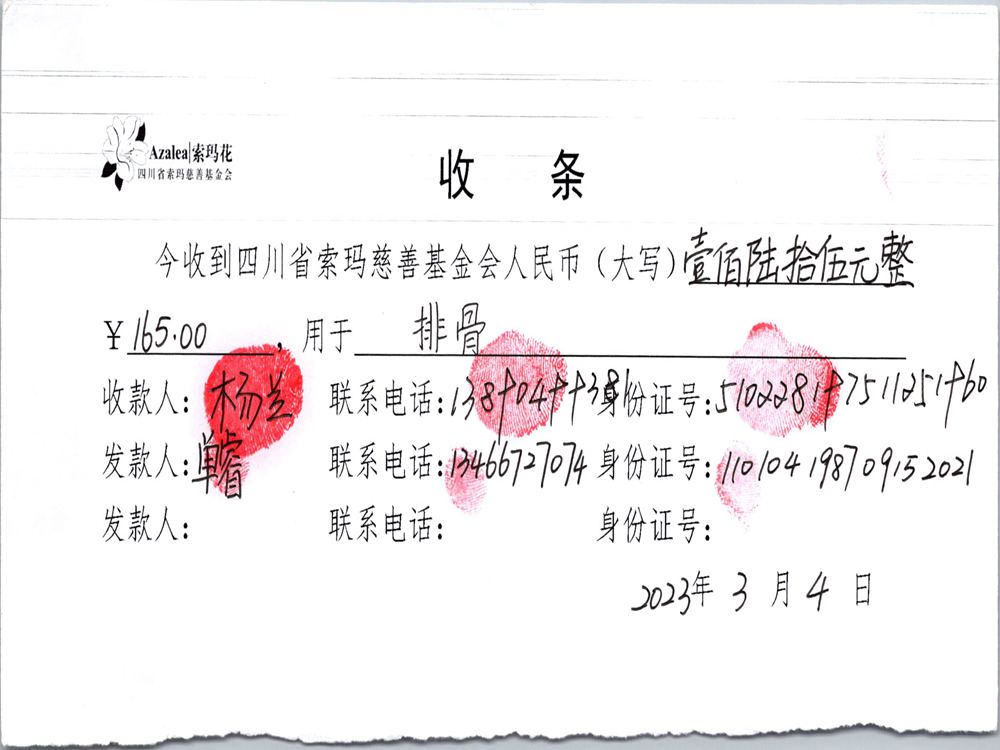 Azalea|索玛花
四川省索玛慈善基金会
收 条
今收到四川省索玛慈善基金会人民币（大写）壹佰陆拾伍元整
¥ 165.00 ，用于 排骨
收款人：杨兰 联系电话：13890499381 身份证号：510228197511251960
发款人：单睿 联系电话：13466727074 身份证号：110104198709152021
发款人： 联系电话： 身份证号：
2023年 3 月 4 日